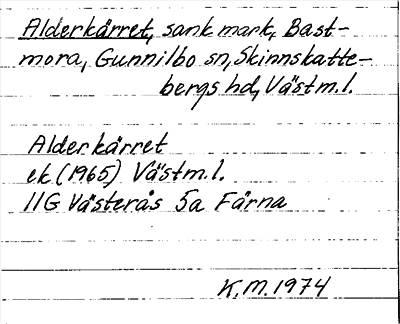 Alderkärret, sank mark, Bast-
mora, Gunnilbo sn, Skinnskatte-
bergs hd, Västm.l.
Alderkärret
ek (1965) Västm.l.
11G Västerås 5a Färna
K.M. 1974